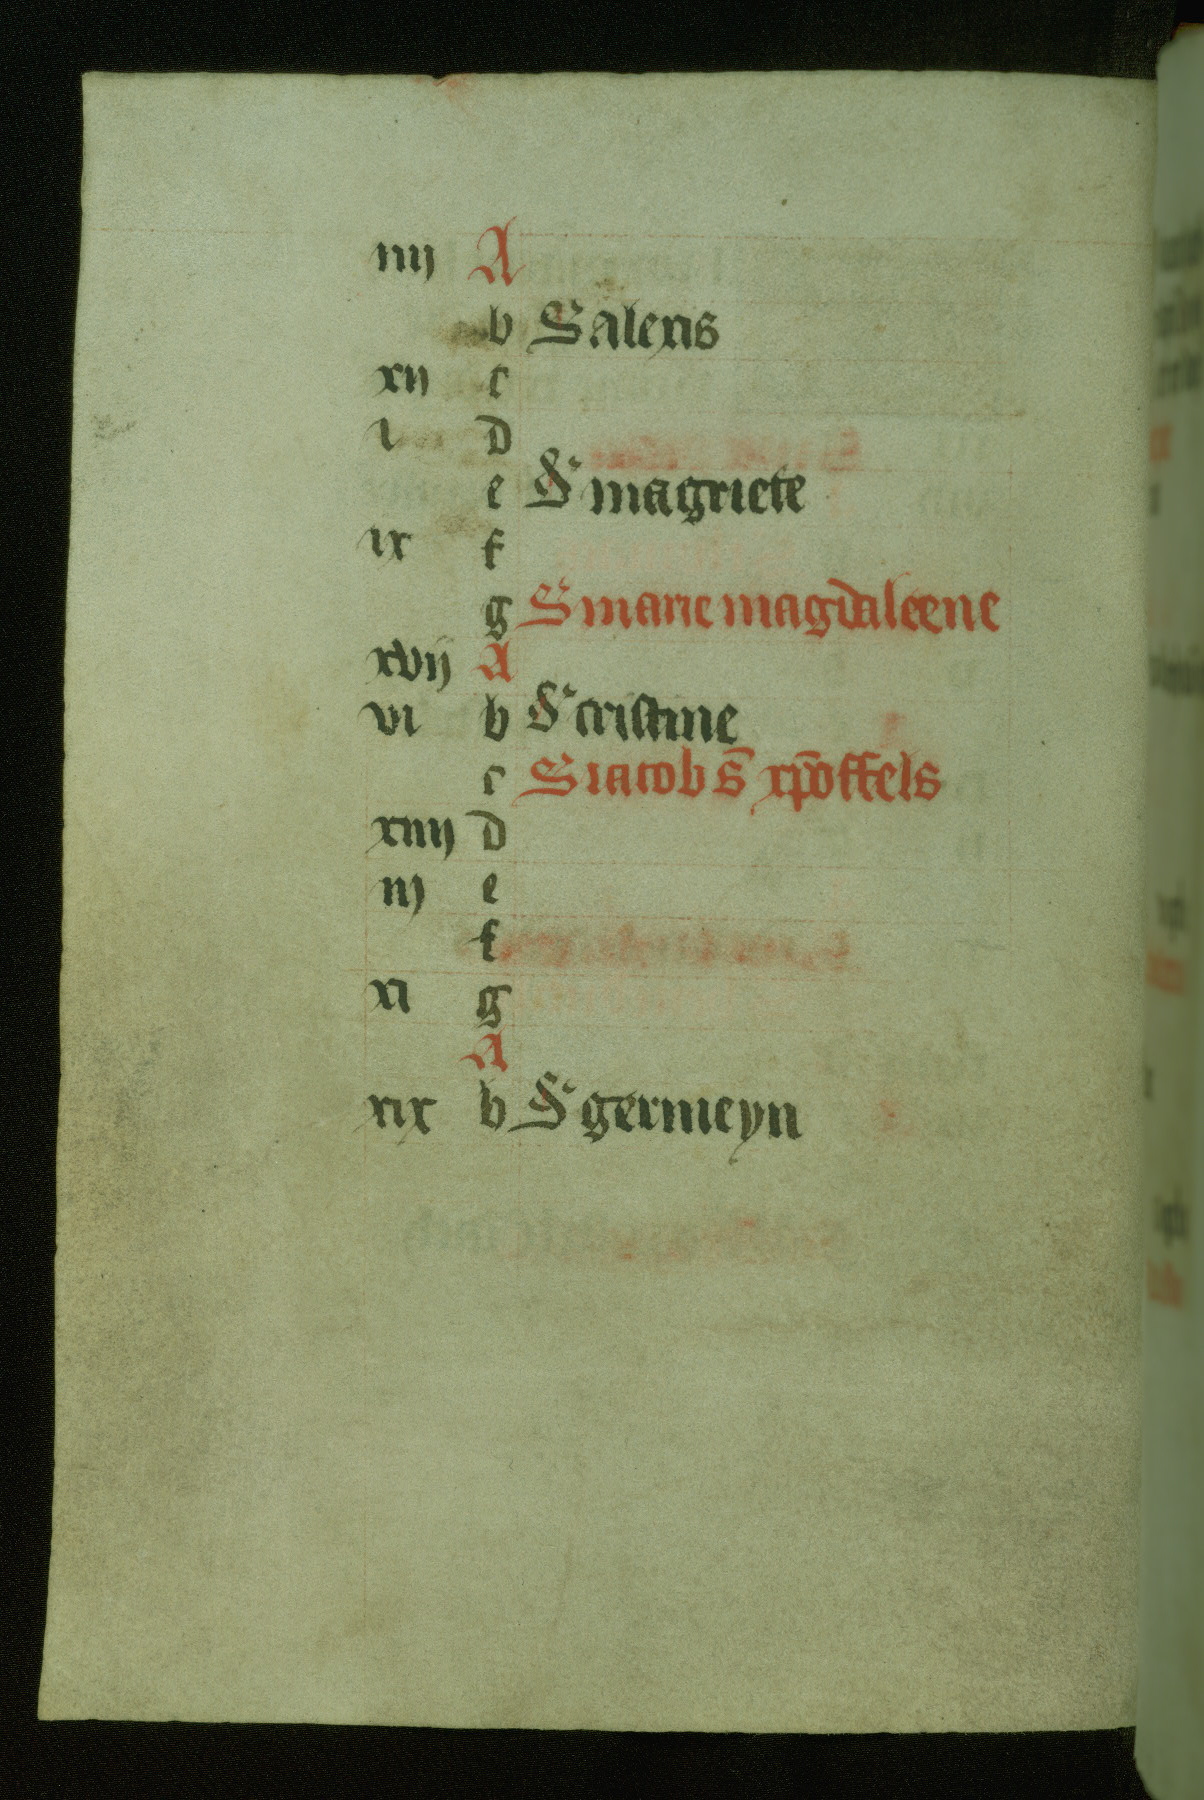 iiij A
b S alexis
xij c
i d
e S' magriete
ix f
g S marie magdaleene
xvij A
vi b S' cristine
c S iacob s̄ xp̄offels
xiiij d
iij e
f
xi g
A
xix b S' germeyn